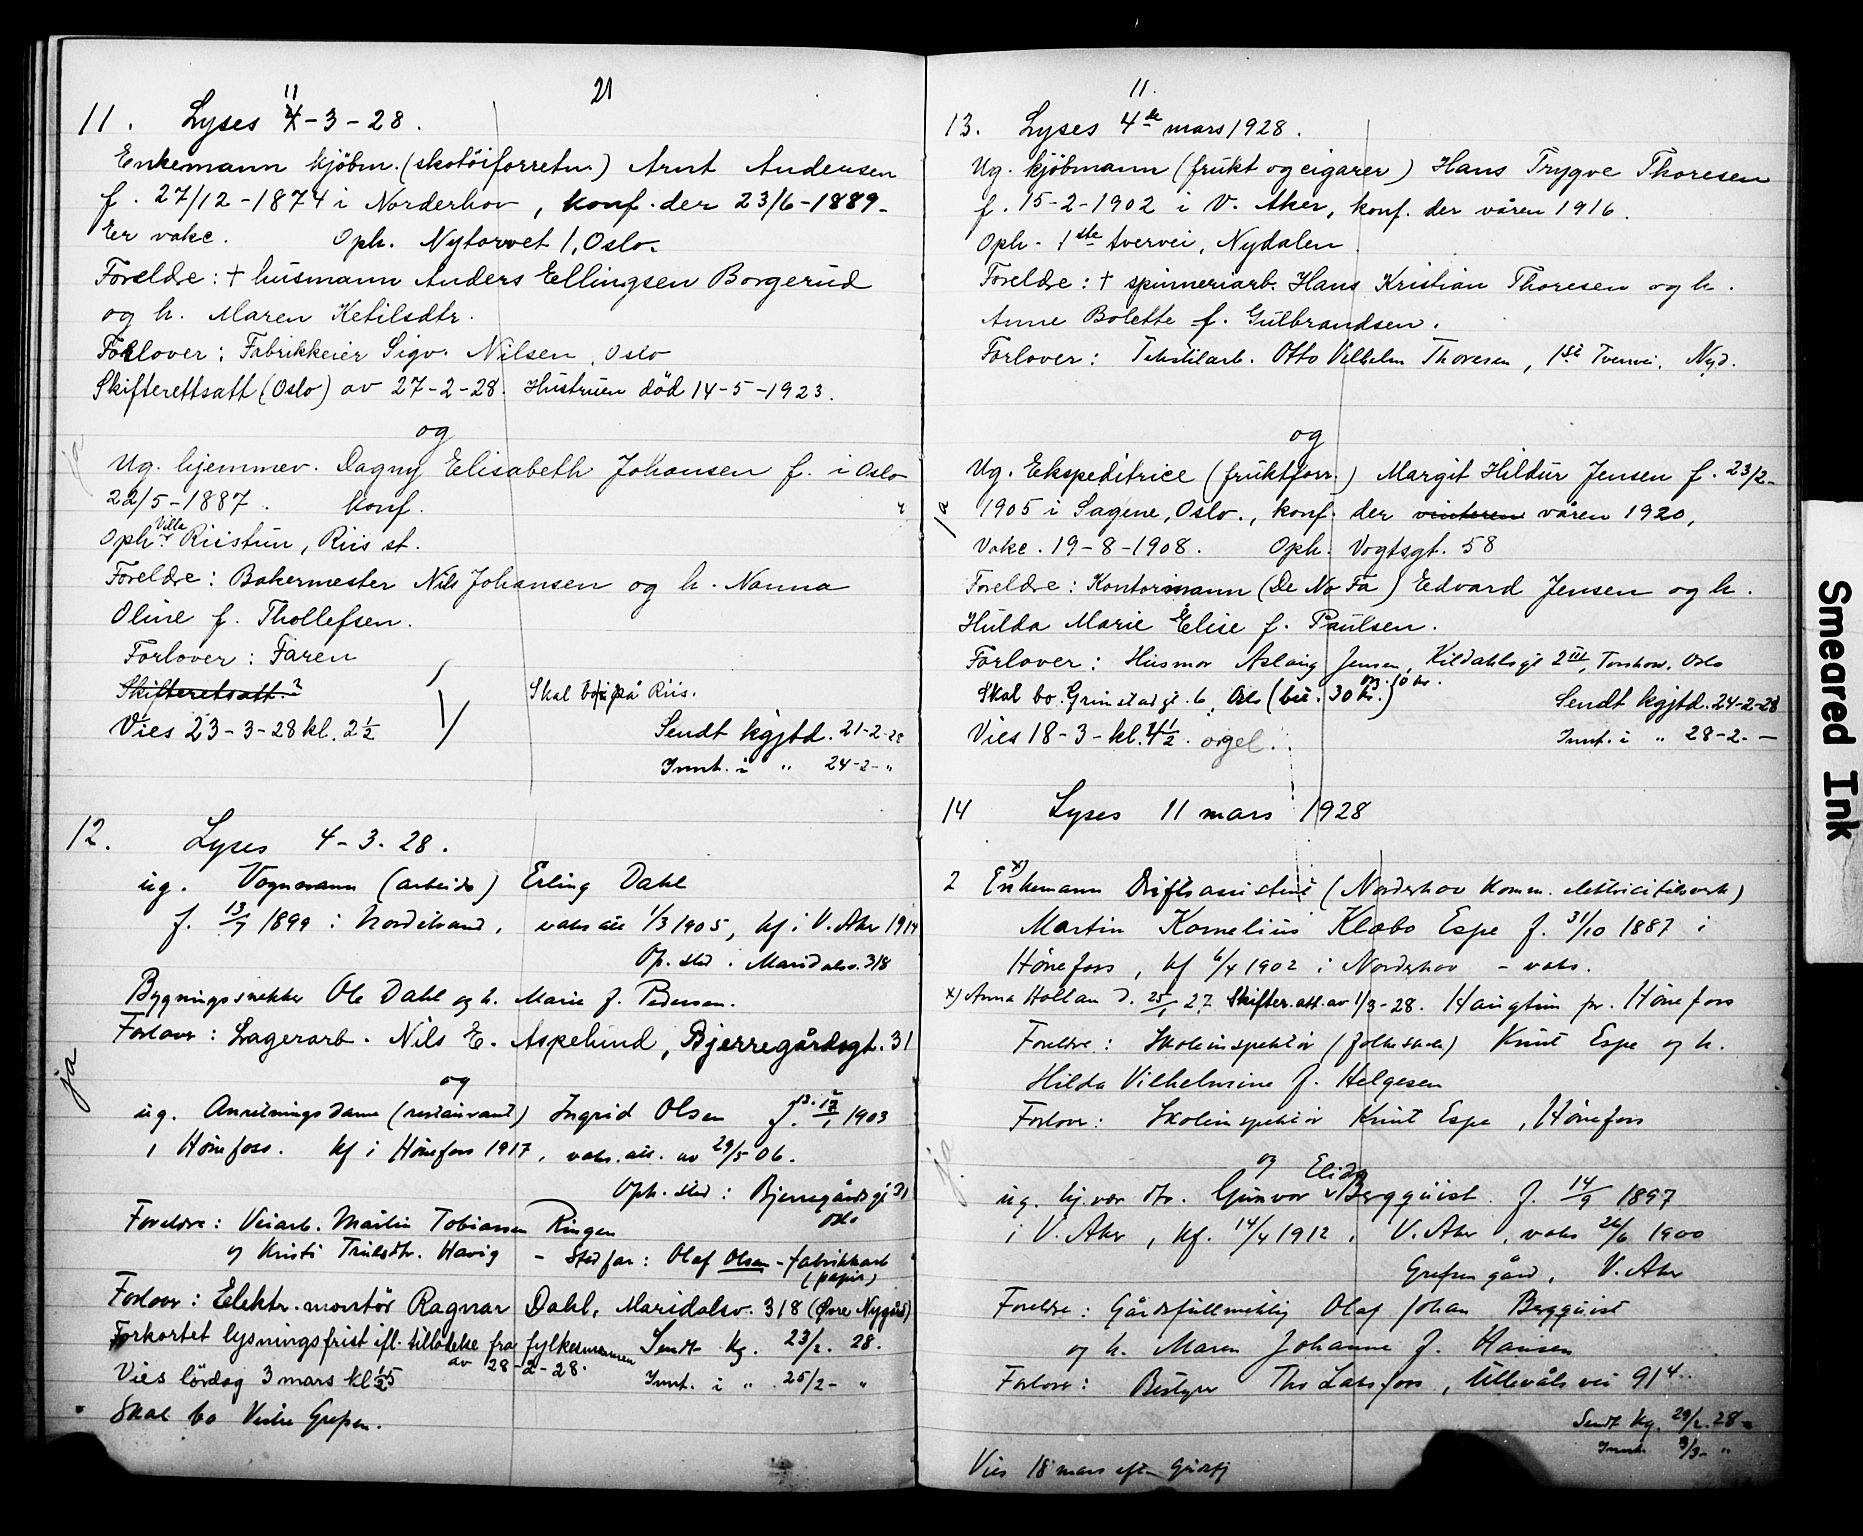 21
11
11. Lyses 4-3-28.
Enkemann kjöbm. (skotöiforretn.) Arnt Andersen
f. 27/12-1874 i Norderhov, konf. der 23/6-1889-
Er vakc. Oph. Nytorvet 1, Oslo.
Foreldre: + husmann Anders Ellingsen Borgerud
og h. Maren Ketilsdtr.
Forlover: Fabrikkeier Sigv. Nilsen, Oslo
Skifterettsatt (Oslo) av 27-2-28. Hustruen död 14-5-1923.
og
Ug. hjemmev. Dagny Elisabeth Johansen f. i Oslo
22/5-1887. konf.
Oph. Villa Riistun, Riis st.
Foreldre: Bakermester Nils Johansen og h. Nanna
Oline f. Thollefsen.
Forlover: Faren
Skifteretsatt.?
Skal bo på Riis.
Vies 23-3-28 kl. 2½ Sendt kgjtd. 21-2-28
Innt. i " 24-2-"
12. Lyses 4-3-28.
ug. Vognmann (arbeids) Erling Dahl
f. 13/7 1899 i Nordstrand, vaks att 1/3 1905, kf i V. Aker 1914
Op. sted. Maridalsv. 318
Bygningssnekker Ole Dahl og h. Marie f. Pedersen.
Forlover: Lagerarb. Nils E. Aspelund, Bjerregårdsgt. 31
ja
og
ug. Anretningsdame (restaurant) Ingrid Olsen f. 1903
i Hönefoss. kf i Hönefoss 1917, vaks. att. av 29/5 06.
Oph. sted: Bjerregårdsgt 31
Oslo
Foreldre: Veiarb. Martin Tobiassen Ringen
og Kristi Trulsdtr. Havig - Stedfar: Olaf Olsen - fabrikkarb
(papir)
Forlover: Elektr. montör Ragnar Dahl, Maridalsv. 318 (Øvre Nygård)
Forkortet lysningsfrist ifl. tillatelse fra fylkesmannen Sendt kg. 23/2. 28.
av 28-2-28.
Vies lördag 3 mars kl ½5 Innt. i " 25/2- "
Skal bo Vestre Grefsen.
11.
13. Lyses 4de mars 1928.
Ug. kjöbmann (frukt og cigarer) Hans Trygve Thoresen
f. 15-2-1902 i V. Aker, konf. der våren 1916.
Oph. 1ste tvervei, Nydalen.
Foreldre: + spinneriarb. Hans Kristian Thoresen og h.
Anne Bolette f. Gulbrandsen.
Forlover: Tekstilarb. Otto Vilhelm Thoresen, 1ste Tvervei, Nyd.
og
Ug. Ekspeditrice (fruktforr.) Margit Hildur Jensen f. 23/2-
ja
1905 i Sagene, Oslo., konf. der vinteren våren 1920,
Vakc. 19-8-1908. Oph. Vogtsgt. 58
Foreldre: Kontormann (De No Fa) Edvard Jensen og h.
Hulda Marie Elise f. Paulsen.
Forlover: Husmor Aslaug Jensen, Kildahlsgt 2 III, Torshov, Oslo
Skal bo Grimstadgt. 6, Oslo (bet. 30 kr.) og 10 kr. Sendt kgjtd. 24-2-28
Vies 18-3-kl. 4½. orgel. Innt. i " 28-2- -
14 Lyses 11 mars 1928
2 Enkemann x) Driftsassistent (Norderhov komm. elektricitetsverk)
Martin Kornelius Klæbo Espe f. 31/10 1887 i
Hönefoss, kf 6/4 1902 i Norderhov - vaks.
x) Anna Hollan d. 27. Skifter.att. av 1/3-28. Haugtun pr. Hönefoss
Foreldre: Skoleinspektör (folkeskole) Knut Espe og h.
Hilda Vilhelmine f. Helgesen
Forlover: Skoleinspektör Knut Espe, Hönefoss
ja.
og
ug. hj.vær. dtr. Gunvor Elida Bergquist. f. 14/9 1897
i V. Aker, kf. 14/4 1912 i V. Aker, vaks 26/6 1900
Grefsen gård, V. Aker
Foreldre: Gårdsfullmektig Olaf Johan Bergquist
og h. Maren Johanne f. Hansen
Forlover: Bestyrer Ths Laksfoss, Ullevålsvei 91 4.
Sendt kg. 29/2. 28-
Innk. 3/3- "
Vies 18 mars eft. Gudstj
Smeared Ink